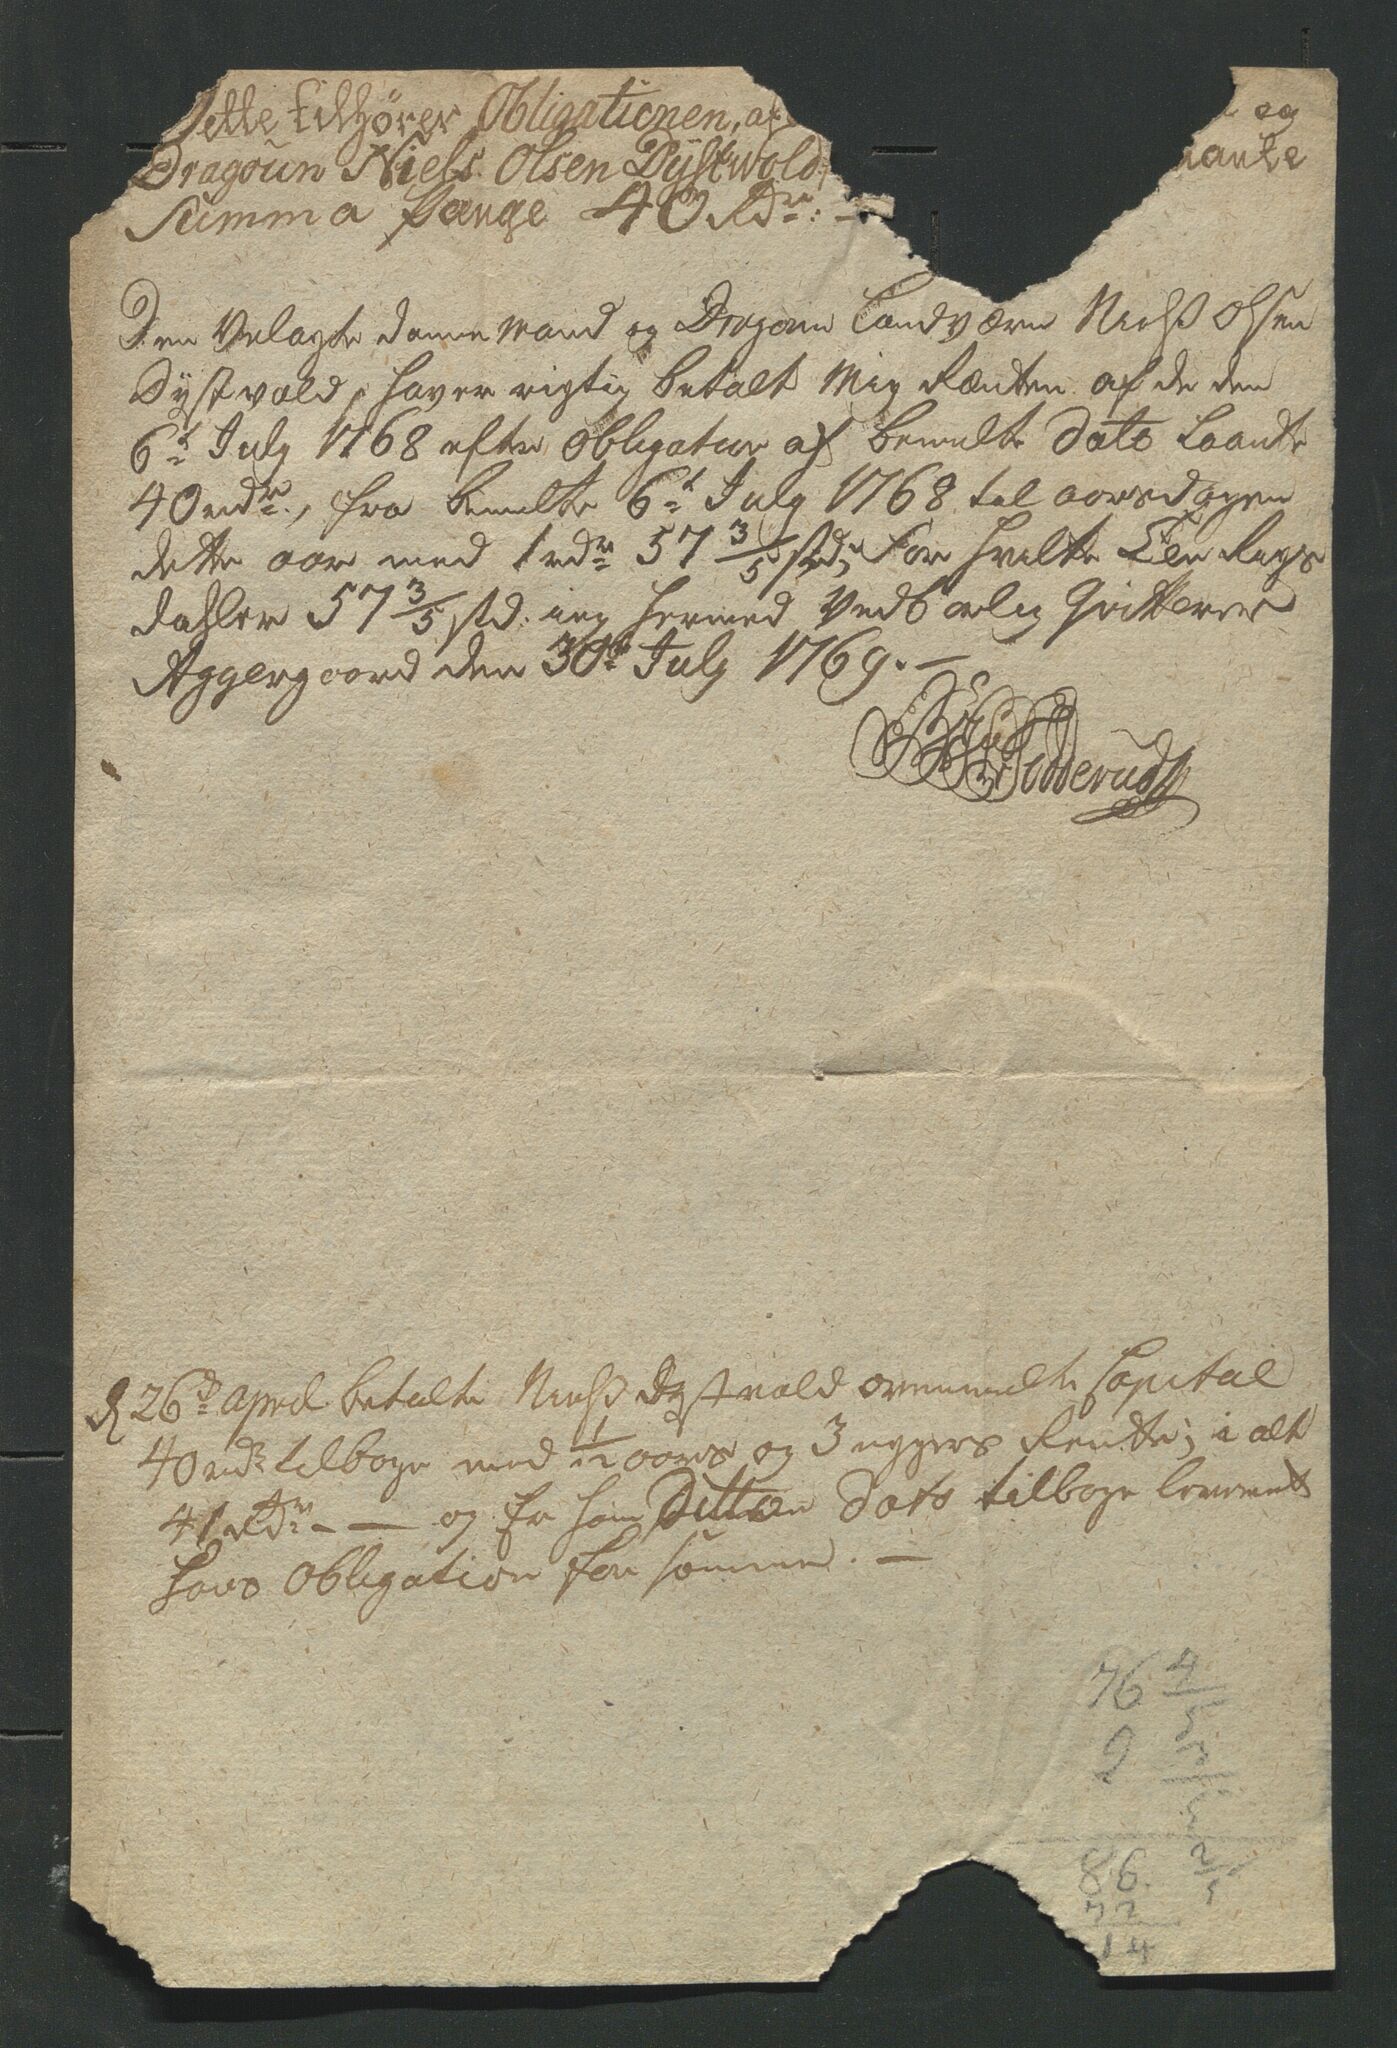 Dette tilhører Obligationen, af og
Dragoun Niels Olsen Dystwold, laante
Summa Pænge 40 Rdr: —
Den Velagte danne Mand og Dragoun Landværn Niels Olsen
Dystvold, haver rigtig betalt Mig Rænten af de den
6t July 1768 efter Obligation af bemelte Dato Laante
40 rdr., fra bemelte 6t July 1768 til aarsdagen
dette aar med 1 rdr 57 3/5 std, For hvilke Een Rigs
dahler 57 3/5 std. ieg hermed Vedbørlig Qvitterer
Aggergaard den 30te July 1769. —
d 26d April betalte Niels Dystvold ovenmelte Capital
40 rdr tilbage med 1/2 aars og 3 uggers Rente; i alt
41 Rdr — — og er ham Ditto Dato tilbage leveret
hans Obligation for summen. —
76 4/5
9 3/5
86. 2/5
72
14